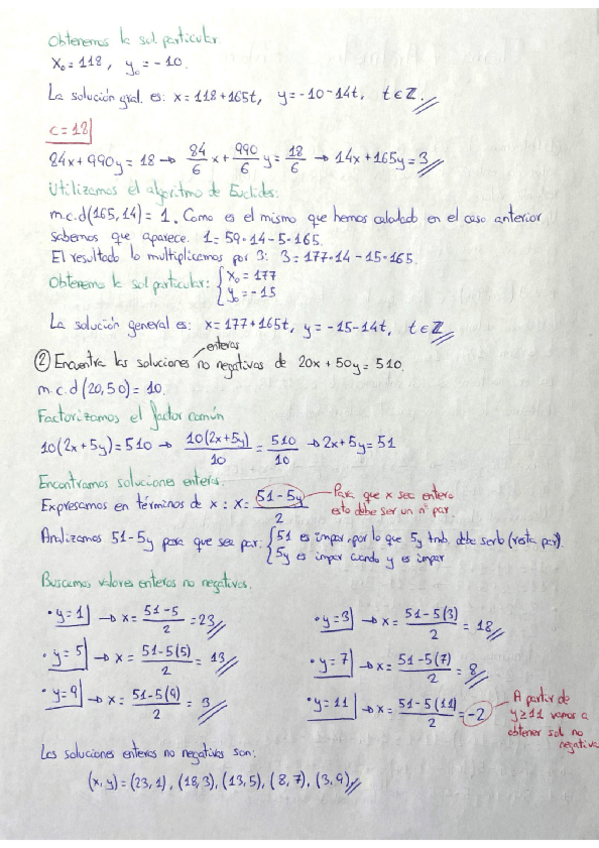 Obtenemos la sol. particular.
x₀ = 118, y₀ = -10.
La solución gral. es: x = 118 + 165t, y = -10 - 14t, t ∈ ℤ.
c = 18
84x + 990y = 18 → 84/6 x + 990/6 y = 18/6 → 14x + 165y = 3
Utilizamos el algoritmo de Euclides:
m.c.d(165, 14) = 1. Como es el mismo que hemos calculado en el caso anterior
sabemos que aparece. 1 = 59·14 - 5·165.
El resultado lo multiplicamos por 3: 3 = 177·14 - 15·165.
Obtenemos la sol. particular: { x₀ = 177
y₀ = -15
La solución general es: x = 177 + 165t, y = -15 - 14t, t ∈ ℤ
enteras
② Encuentra las soluciones no negativas de 20x + 50y = 510.
m.c.d(20, 50) = 10.
Factorizamos el factor común
10(2x + 5y) = 510 → 10(2x + 5y)/10 = 510/10 → 2x + 5y = 51
Encontramos soluciones enteras:
Expresamos en términos de x: x = (51 - 5y)/2
Para que x sea entero
esto debe ser un nº par.
Analizamos 51 - 5y para que sea par: { 51 es impar, por lo que 5y tmb. debe serlo (resta par).
5y es impar cuando y es impar
Buscamos valores enteros no negativos.
• y = 1 → x = (51 - 5)/2 = 23
• y = 3 → x = (51 - 5(3))/2 = 18
• y = 5 → x = (51 - 5(5))/2 = 13
• y = 7 → x = (51 - 5(7))/2 = 8
• y = 9 → x = (51 - 5(9))/2 = 3
• y = 11 → x = (51 - 5(11))/2 = -2
A partir de
y ≥ 11 vamos a
obtener sol. no
negativa
Las soluciones enteras no negativas son:
(x, y) = (23, 1), (18, 3), (13, 5), (8, 7), (3, 9)